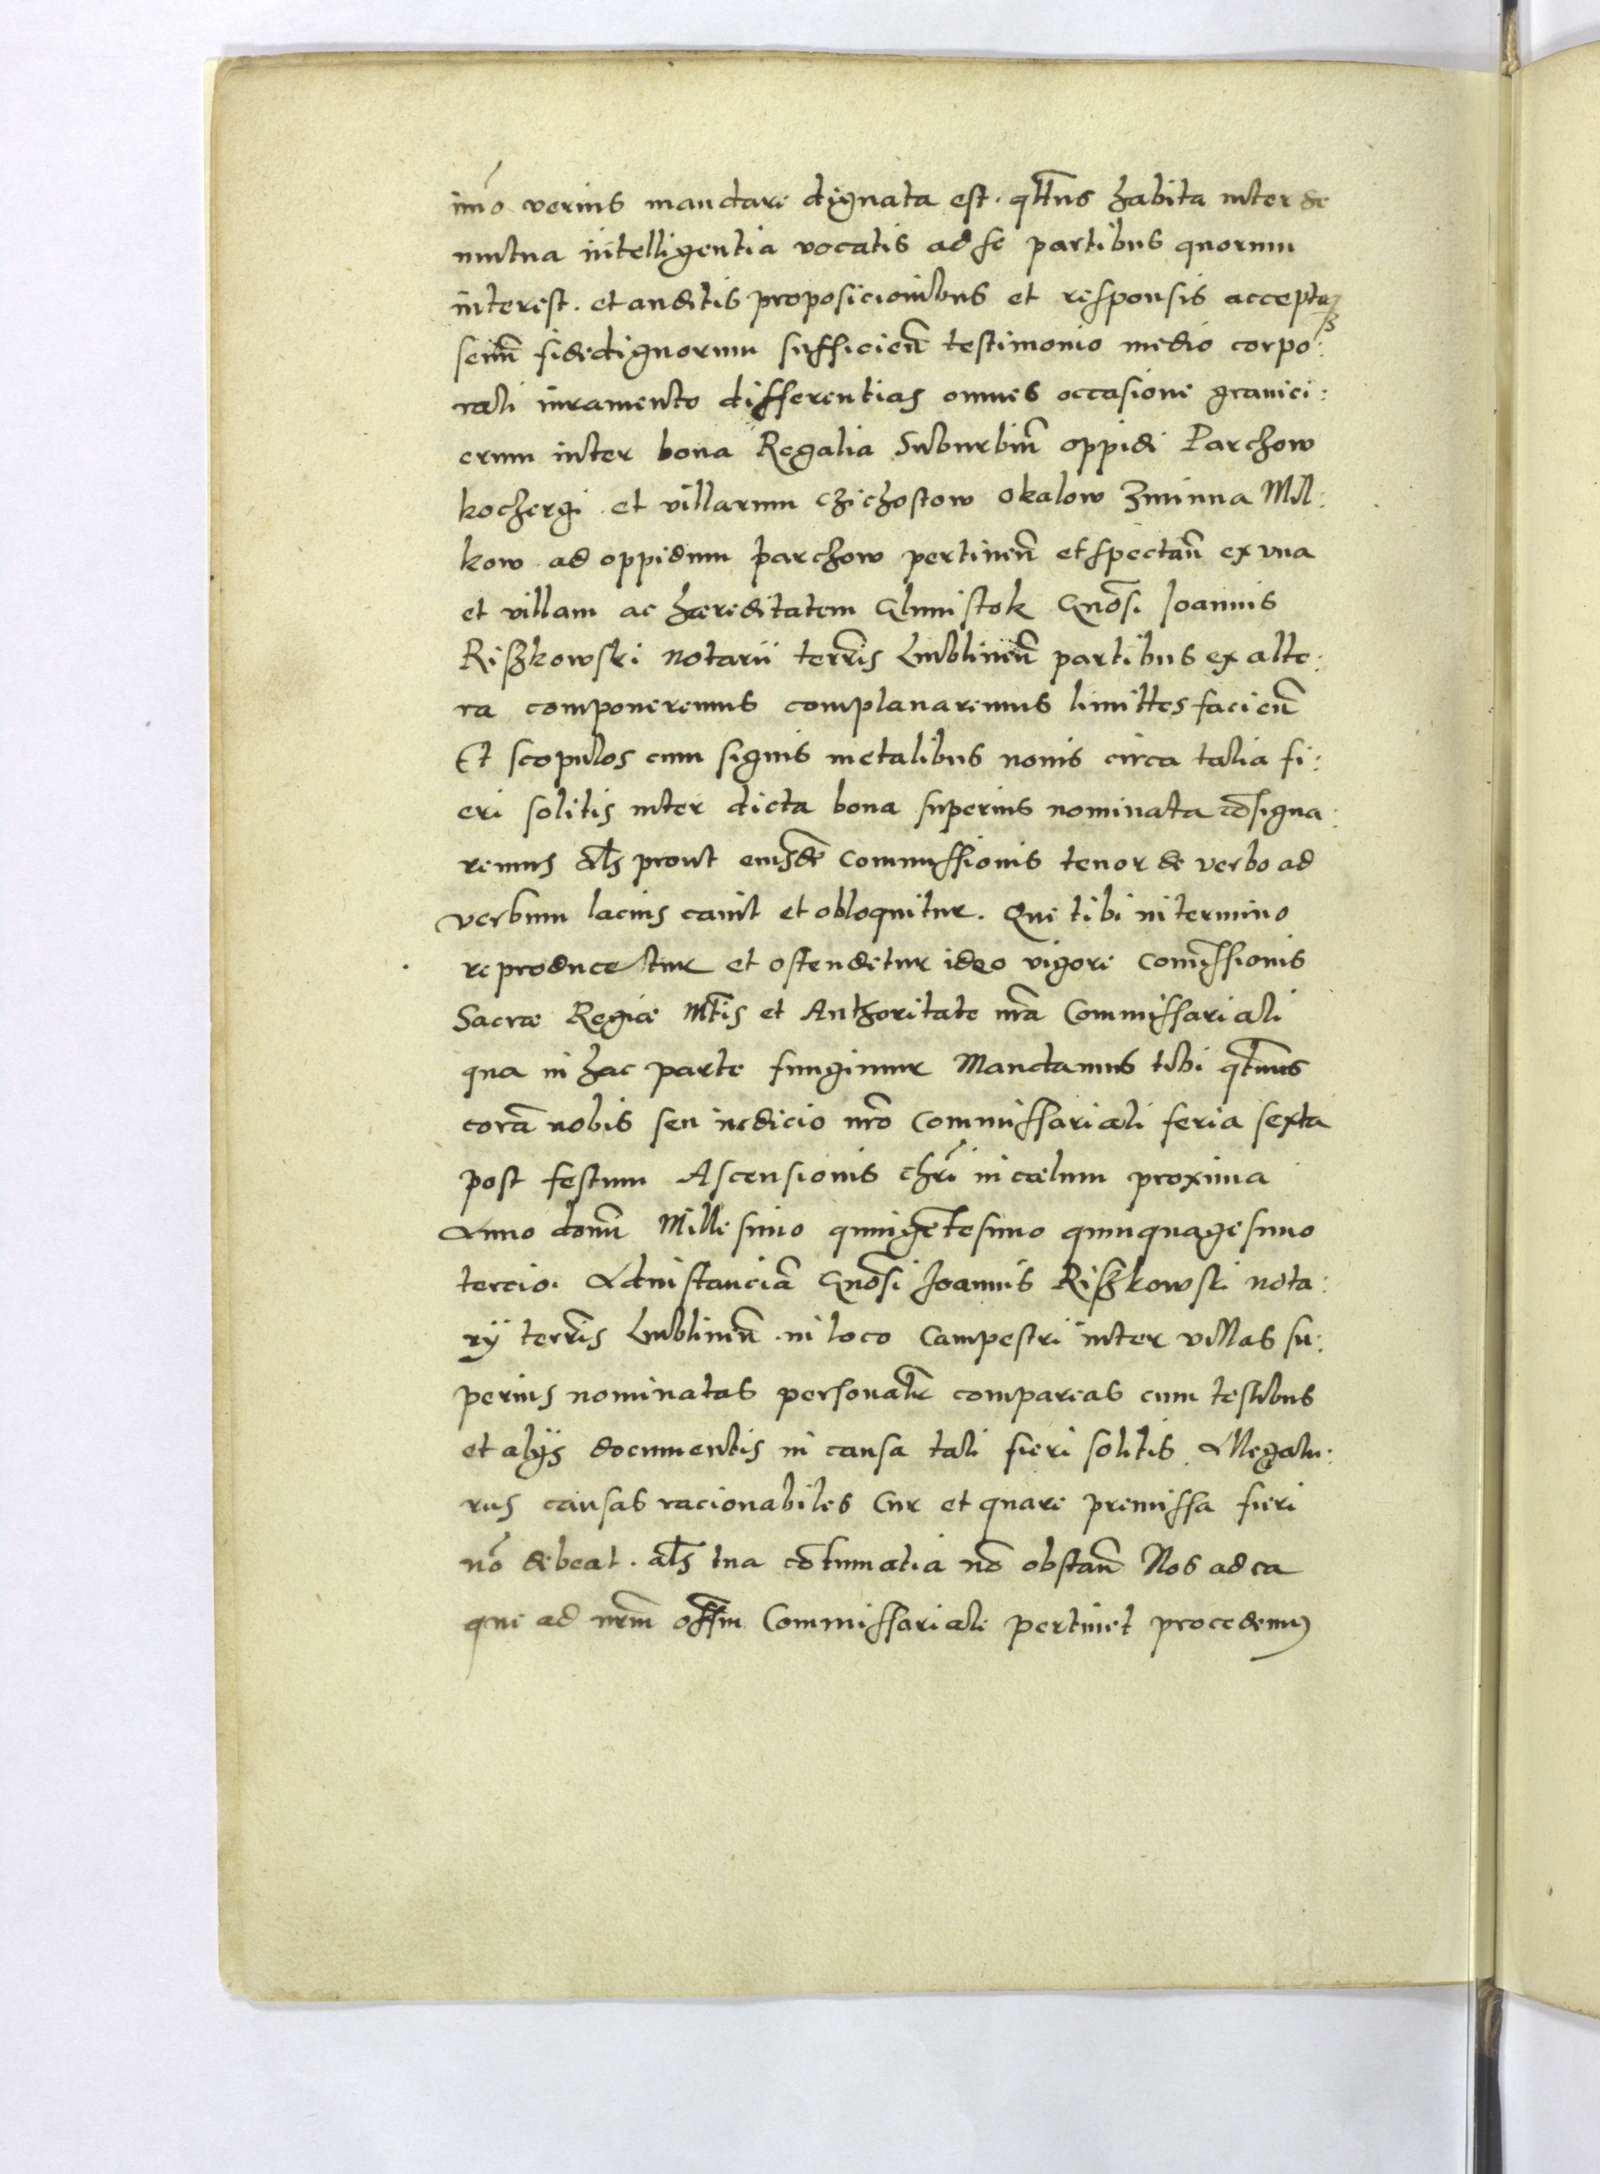 imo verius mandare dignata est. qttus habita inter se
mutua intelligentia vocatis ad se partibus quorum
interest. et auditis proposicionibus et responsis acceptaqȝ
seniũ fidedignorum sufficieñ testimonio medio corpo:
rali iuramento differentias omnes occasione granici:
erum inter bona Regalia Suburbiũ oppidi Parchow
kochergi et villarum Czichostow Okalow Zminna Mil:
kow ad oppidum parchow pertineñ et spectañ ex vna
et villam ac hæreditatem Glinnistok Gnõsi Joannis
Rißkowski notarii terrĩs Lublineñ partibus ex alte:
ra componeremus complanaremus limittes facieñ
Et scopulos cum signis metalibus nouis circa talia fi:
eri solitis inter dicta bona superius nominata cõsigna:
remus als prout eiusdẽ Commissionis tenor de verbo ad
verbum lacius canit et obloquitur. Qui tibi in termino
reproducetur et ostendetur ideo vigore Comissionis
Sacræ Regiæ Mtis et Authoritate nrã Commissariali
qua in hac parte fungimur Mandamus tibi qtenus
corã nobis seu iudicio nrõ Commissariali feria sexta
post festum Ascensionis chri in cælum proxima
Anno domi Millesimo quingẽtesimo quinquagesimo
tercio. Ad instanciã Gnõsi Joannis Rißkowski nota:
rÿ terrĩs Lublineñ in loco Campestri inter villas su:
perius nominatas personalr compareas cum testibus
et alÿs documentis in causa tali fieri solitis Allegatu:
rus causas racionabiles Cur et quare premissa fieri
nõ debeat. als tua cõtumatia nõ obstañ Nos ad ea
que ad nrm offm Commissariale pertinet procedemus